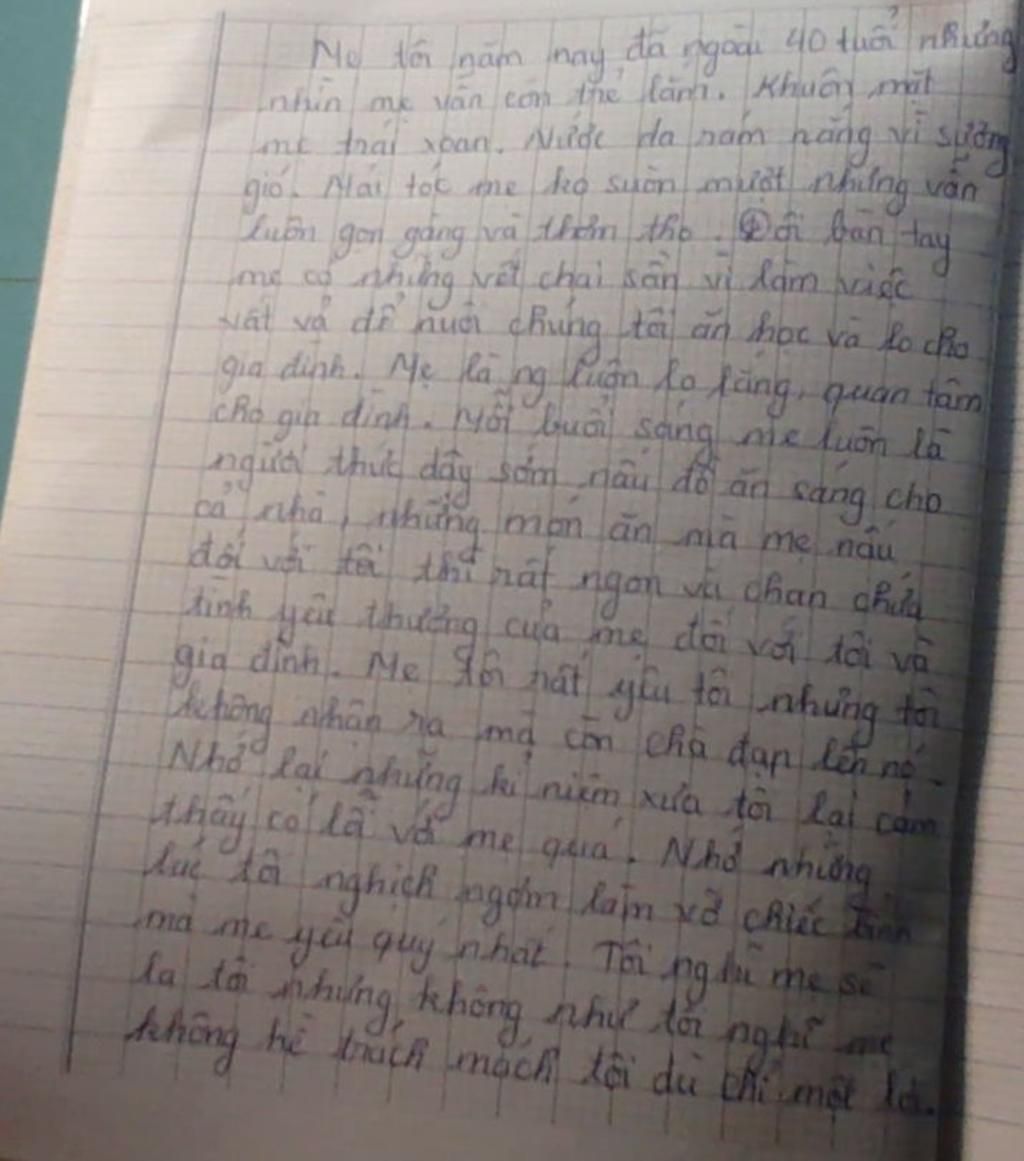 Mẹ tôi năm nay đã ngoài 40 tuổi nhưng
nhìn mẹ vẫn còn trẻ lắm. Khuôn mặt
mẹ trái xoan. Nước da rám nắng vì sương
gió. Mái tóc mẹ ko suôn mượt nhưng vẫn
luôn gọn gàng và thơm tho. Đôi bàn tay
mẹ có những vết chai sần vì làm việc
vất vả để nuôi chúng tôi ăn học và lo cho
gia đình. Mẹ là ng luôn lo lắng, quan tâm
cho gia đình. Mỗi buổi sáng mẹ luôn là
người thức dậy sớm nấu đồ ăn sáng cho
cả nhà, những món ăn mà mẹ nấu
đối với tôi thì rất ngon và chan chứa
tình yêu thương của mẹ đối với tôi và
gia đình. Mẹ tôi rất yêu tôi nhưng tôi
không nhận ra mà còn chà đạp lên nó.
Nhớ lại những kỉ niệm xưa tôi lại cảm
thấy có lỗi với mẹ quá. Nhớ những
lúc tôi nghịch ngợm làm vỡ chiếc
mà mẹ yêu quý nhất. Tôi nghĩ mẹ sẽ
la tôi nhưng không như tôi nghĩ mẹ
không hề trách móch tôi dù chỉ một lời.